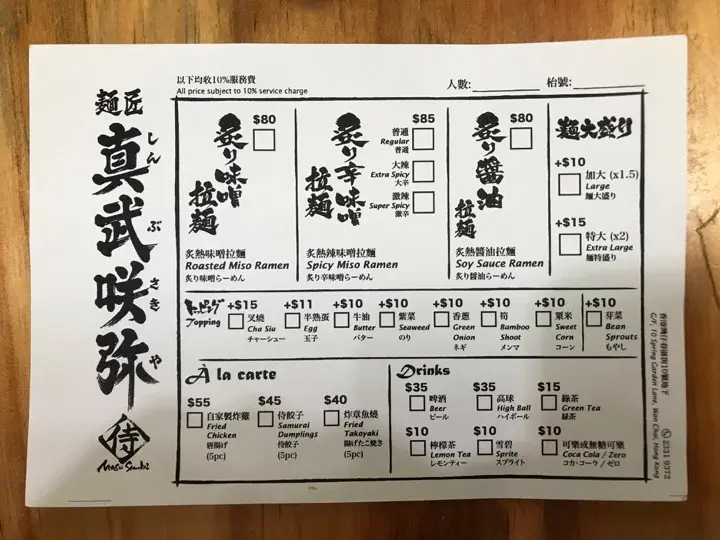 麵匠
真武咲弥
しんぶさきや
侍
以下均收10%服務費
All price subject to 10% service charge
人數:
枱號:
$80
炙り味噌拉麵
炙熱味噌拉麵
Roasted Miso Ramen
炙り味噌らーめん
$85
炙り辛味噌拉麵
普通
Regular
普通
大辣
Extra Spicy
大辛
激辣
Super Spicy
激辛
炙熱辣味噌拉麵
Spicy Miso Ramen
炙り辛味噌らーめん
$80
炙り醬油拉麵
炙熱醬油拉麵
Soy Sauce Ramen
炙り醬油らーめん
麵大盛り
+$10
加大 (x1.5)
Large
麵大盛り
+$15
特大 (x2)
Extra Large
麵特盛り
トッピング
Topping
+$15
叉燒
Cha Siu
チャーシュー
+$11
半熟蛋
Egg
玉子
+$10
牛油
Butter
バター
+$10
紫菜
Seaweed
のり
+$10
香蔥
Green
Onion
ネギ
+$10
筍
Bamboo
Shoot
メンマ
+$10
粟米
Sweet
Corn
コーン
+$10
芽菜
Bean
Sprouts
もやし
À la carte
$55
自家製炸雞
Fried
Chicken
唐揚げ
(5pc)
$45
侍餃子
Samurai
Dumplings
侍餃子
(5pc)
$40
炸章魚燒
Fried
Takoyaki
揚げたこ焼き
(5pc)
Drinks
$35
啤酒
Beer
ビール
$35
高球
High Ball
ハイボール
$15
綠茶
Green Tea
緑茶
$10
檸檬茶
Lemon Tea
レモンティー
$10
雪碧
Sprite
スプライト
$10
可樂或無糖可樂
Coca Cola / Zero
コカ·コーラ / ゼロ
香港灣仔春園街10號地下
G/F, 10 Spring Garden Lane, Wan Chai, Hong Kong
2331 9372